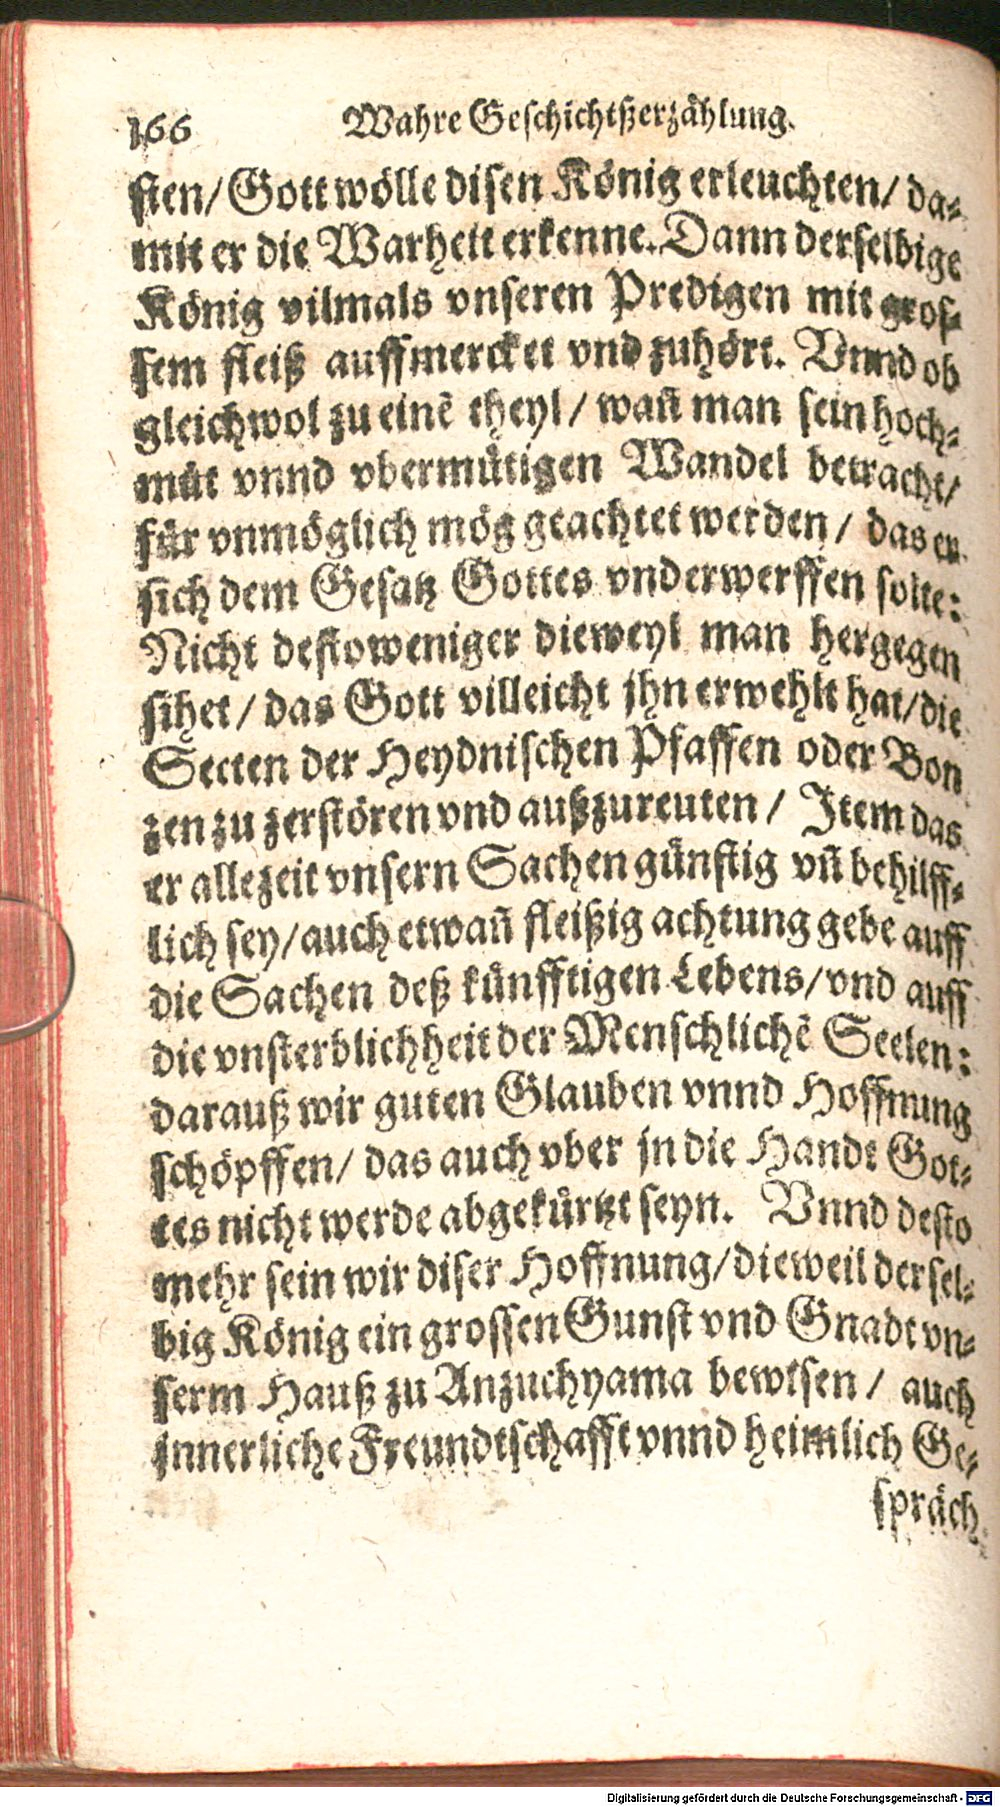 166 Wahre Geschichtßerzählung.
sten/ Gott wölle disen König erleuchten/ da-
mit er die Warheit erkenne. Dann derselbige
König vilmals vnseren Predigen mit gros-
sem fleiß auffmercket vnd zuhört. Vnnd ob
gleichwol zu einē theyl/ wañ man sein hoch-
müt vnnd vbermütigen Wandel betracht/
für vnmöglich mög geachtet werden/ das er
sich dem Gesatz Gottes vnderwerffen solte:
Nicht destoweniger dieweyl man hergegen
sihet/ das Gott villeicht jhn erwehlt hat/ die
Secten der Heydnischen Pfaffen oder Bon
zen zu zerstören vnd außzureuten/ Item das
er allezeit vnsern Sachen günstig vñ behilff-
lich sey/ auch etwañ fleißig achtung gebe auff
die Sachen deß künfftigen Lebens/ vnd auff
die vnsterblichheit der Menschlichē Seelen:
darauß wir guten Glauben vnnd Hoffnung
schöpffen/ das auch vber jn die Handt Got-
tes nicht werde abgekürtzt seyn. Vnnd desto
mehr sein wir diser Hoffnung/ dieweil dersel-
big König ein grossen Gunst vnd Gnadt vn-
serm Hauß zu Anzuchyama bewisen/ auch
innerliche Freundtschafft vnnd heimlich Ge-
spräch
Digitalisierung gefördert durch die Deutsche Forschungsgemeinschaft - DFG